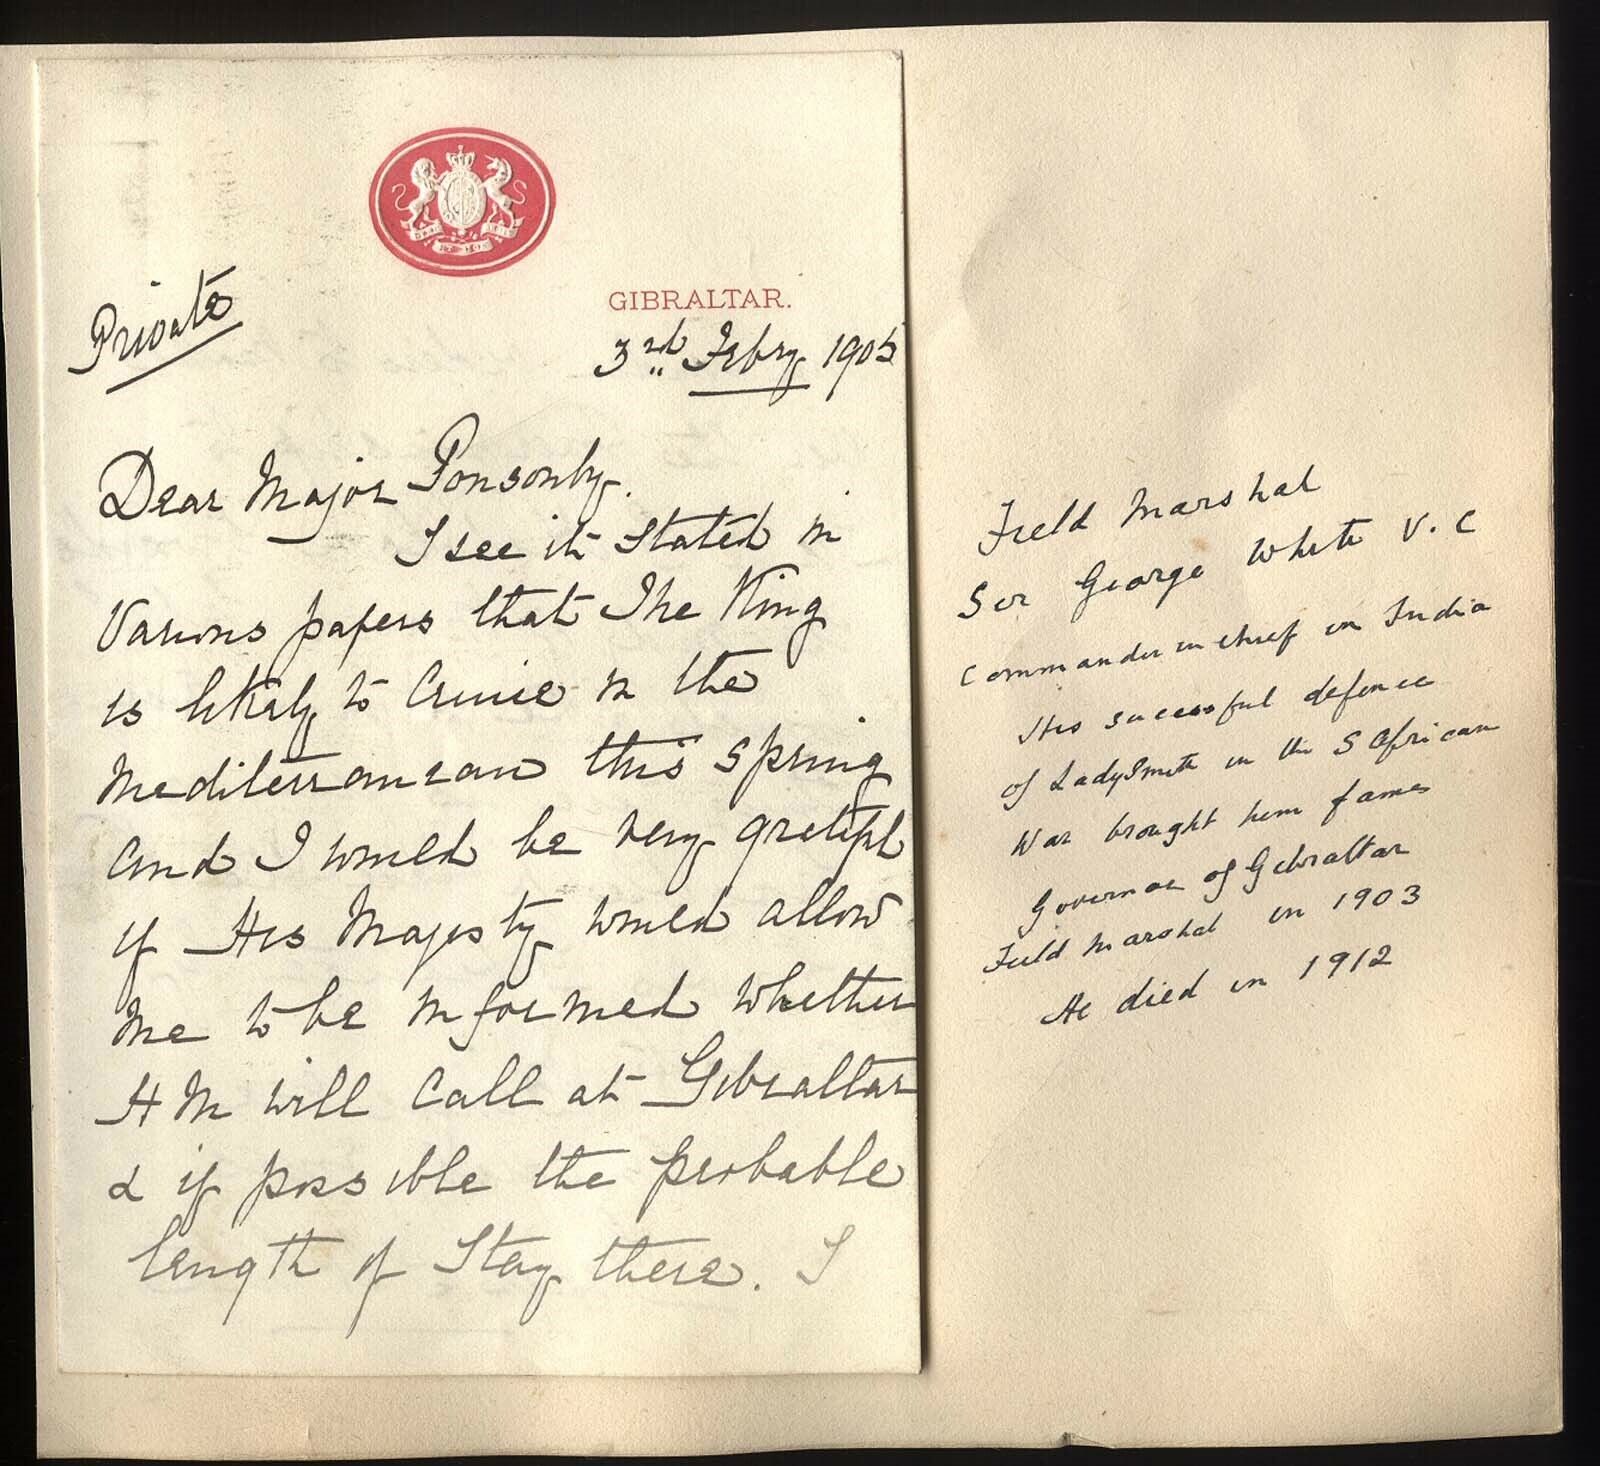 Private
GIBRALTAR.
3rd Febry 1905
Dear Major Ponsonby.
I see it stated in
Various papers that The King
is likely to Cruise in the
Mediterranean this spring
and I would be very grateful
if His Majesty would allow
me to be informed whether
H M will call at Gibraltar
& if possible the probable
length of Stay there. I
Field Marshal
Sir George White V.C
Commander in chief in India
His successful defence
of LadySmith in the S African
War brought him fame
Governor of Gibraltar
Field Marshal in 1903
He died in 1912